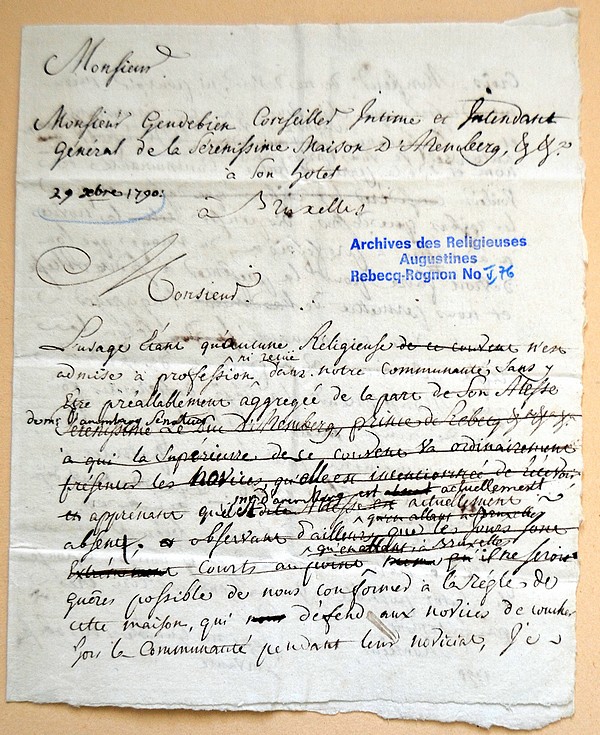 Monsieur
Monsieur Gendebien Conseiller Intime et Intendant
général de la Sérénissime Maison D'Aremberg, &c &c
à Son hotel
29 xbre 1790.
à Bruxelles
Archives des Religieuses
Augustines
Rebecq-Rognon No V 76
Monsieur.
L'usage étant qu'aucune Réligieuse de ce couvent n'est
ni reçue
admise à profession dans notre Communauté Sans y
Être préallablement aggregée de la part de Son Altesse
Sérénissime Le Duc D'Aremberg, prince de Rebecq &c &c &c
à qui la Superieure de ce couvent va ordinairement
présenter les novices, qu'elle est intentionnée de recevoir
d'aremberg est actuellement
et apprénant que Sadite Altesse est actuellement
qu'en allant à Bruxelles
absent, et observant d'ailleurs que les jours sont
qu'en allant à Bruxelles
Extrémement Courts au point qu'il ne seroit
guères possible de nous conformer à la règle de
cette maison, qui nous défend aux novices de coucher
hors la Communauté pendant leur noviciat, Je